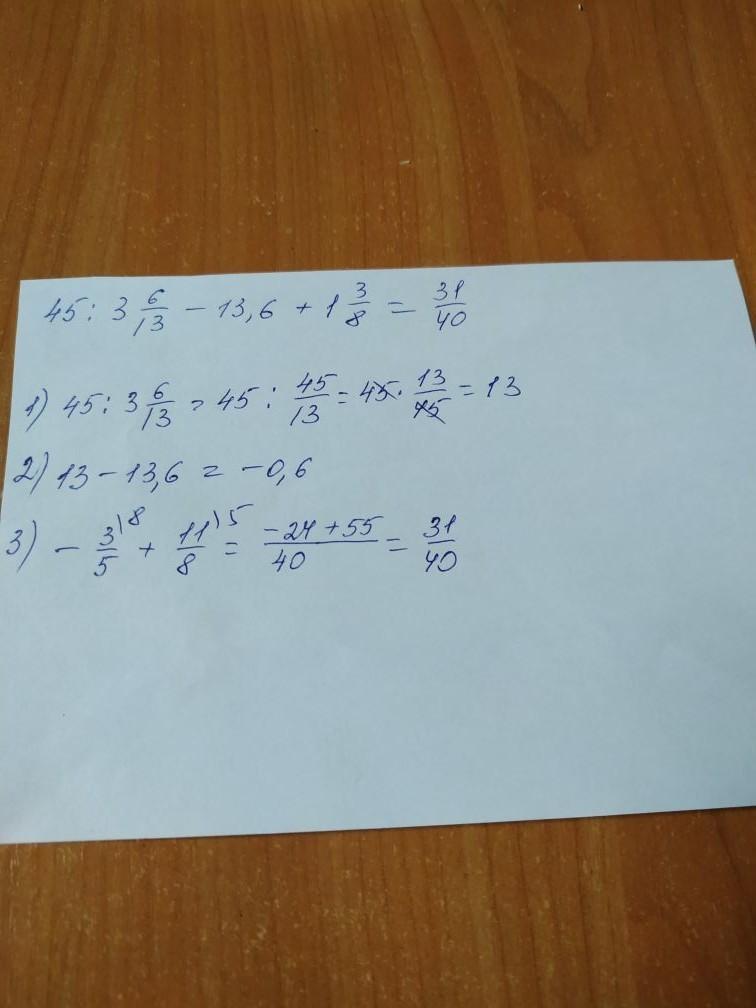 45 : 3 6/13 - 13,6 + 1 3/8 = 31/40
1) 45 : 3 6/13 = 45 : 45/13 = 45 · 13/45 = 13
2) 13 - 13,6 = -0,6
3) - 3\8/5 + 11\5/8 = -24 + 55/40 = 31/40